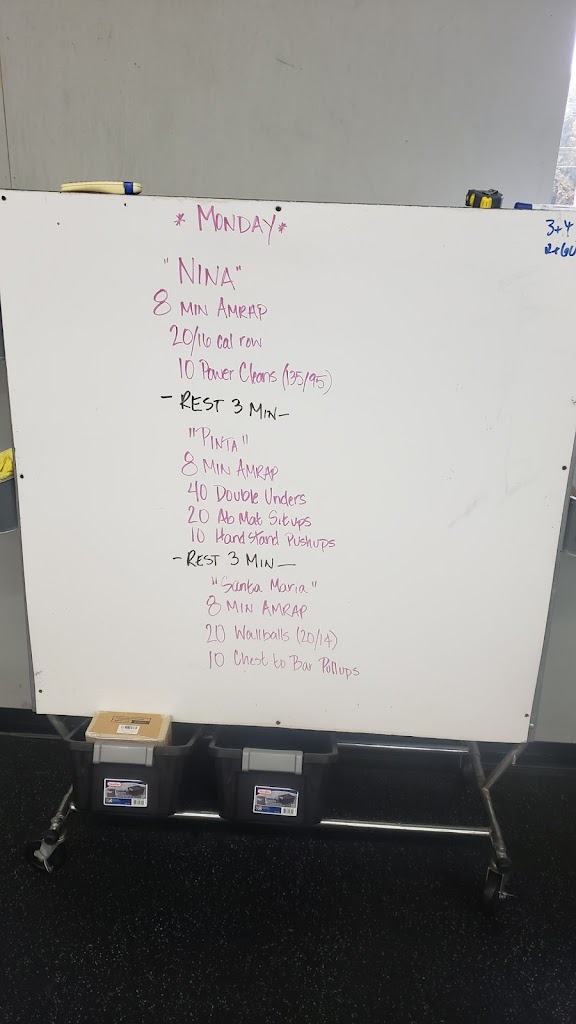 * MONDAY *
"NINA"
8 MIN AMRAP
20/16 cal row
10 Power Cleans (135/95)
- REST 3 MIN -
"PINTA"
8 MIN AMRAP
40 Double Unders
20 Ab Mat Situps
10 Handstand Pushups
- REST 3 MIN -
"Santa Maria"
8 MIN AMRAP
20 Wallballs (20/14)
10 Chest to Bar Pullups
3+4